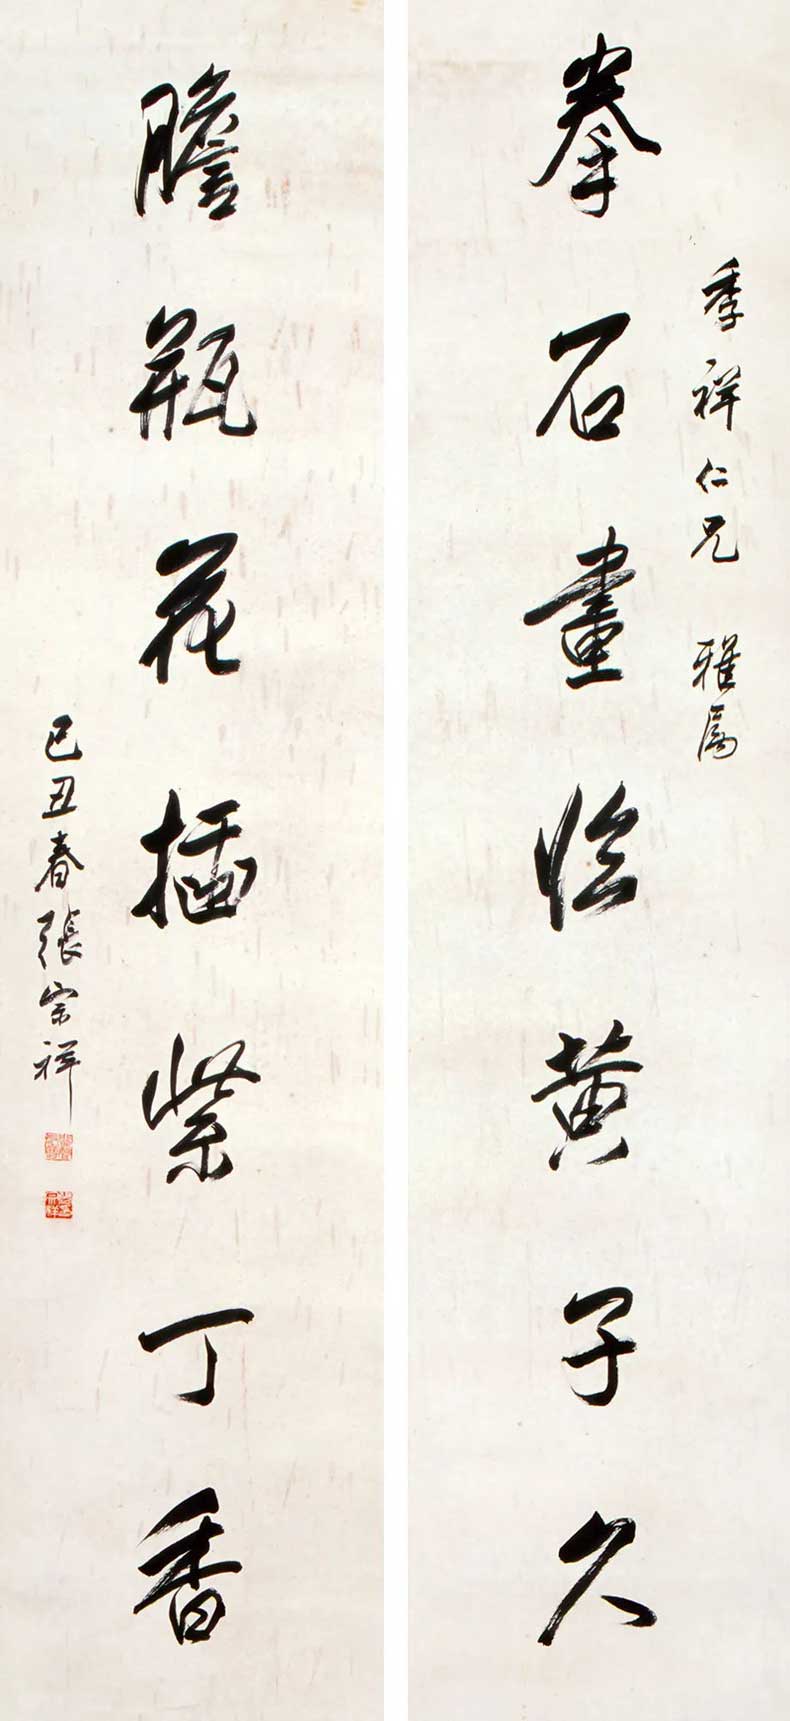 季祥仁兄 雅属
拳石畫臨黄子久
膽瓶花插紫丁香
己丑春張宗祥